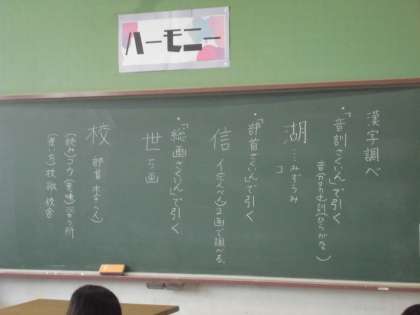 ハーモニー
漢字調べ
・「音訓さくいん」で引く
音(カタカナ)訓(ひらがな)
湖…みずうみ
コ
・「部首さくいん」で引く
信 イ(にんべん)2画で調べる。
・「総画さくいん」で引く
世 5画
校 部首 木(きへん)
(読み)コウ(意味)